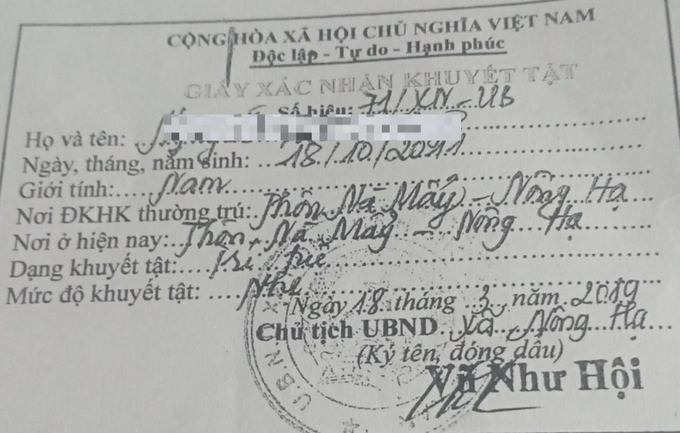 CỘNG HÒA XÃ HỘI CHỦ NGHĨA VIỆT NAM
Độc lập - Tự do - Hạnh phúc
GIẤY XÁC NHẬN KHUYẾT TẬT
Số hiệu: 71/XN-UB
Họ và tên:
Ngày, tháng, năm sinh: 18/10/2011
Giới tính: Nam
Nơi ĐKHK thường trú: Thôn Nà Mẩy - Nông Hạ
Nơi ở hiện nay: Thôn Nà Mẩy - Nông Hạ
Dạng khuyết tật: Trí tuệ
Mức độ khuyết tật: Nhẹ
Ngày 18 tháng 3 năm 2019
Chủ tịch UBND xã Nông Hạ
(Ký tên, đóng dấu)
Vũ Như Hội